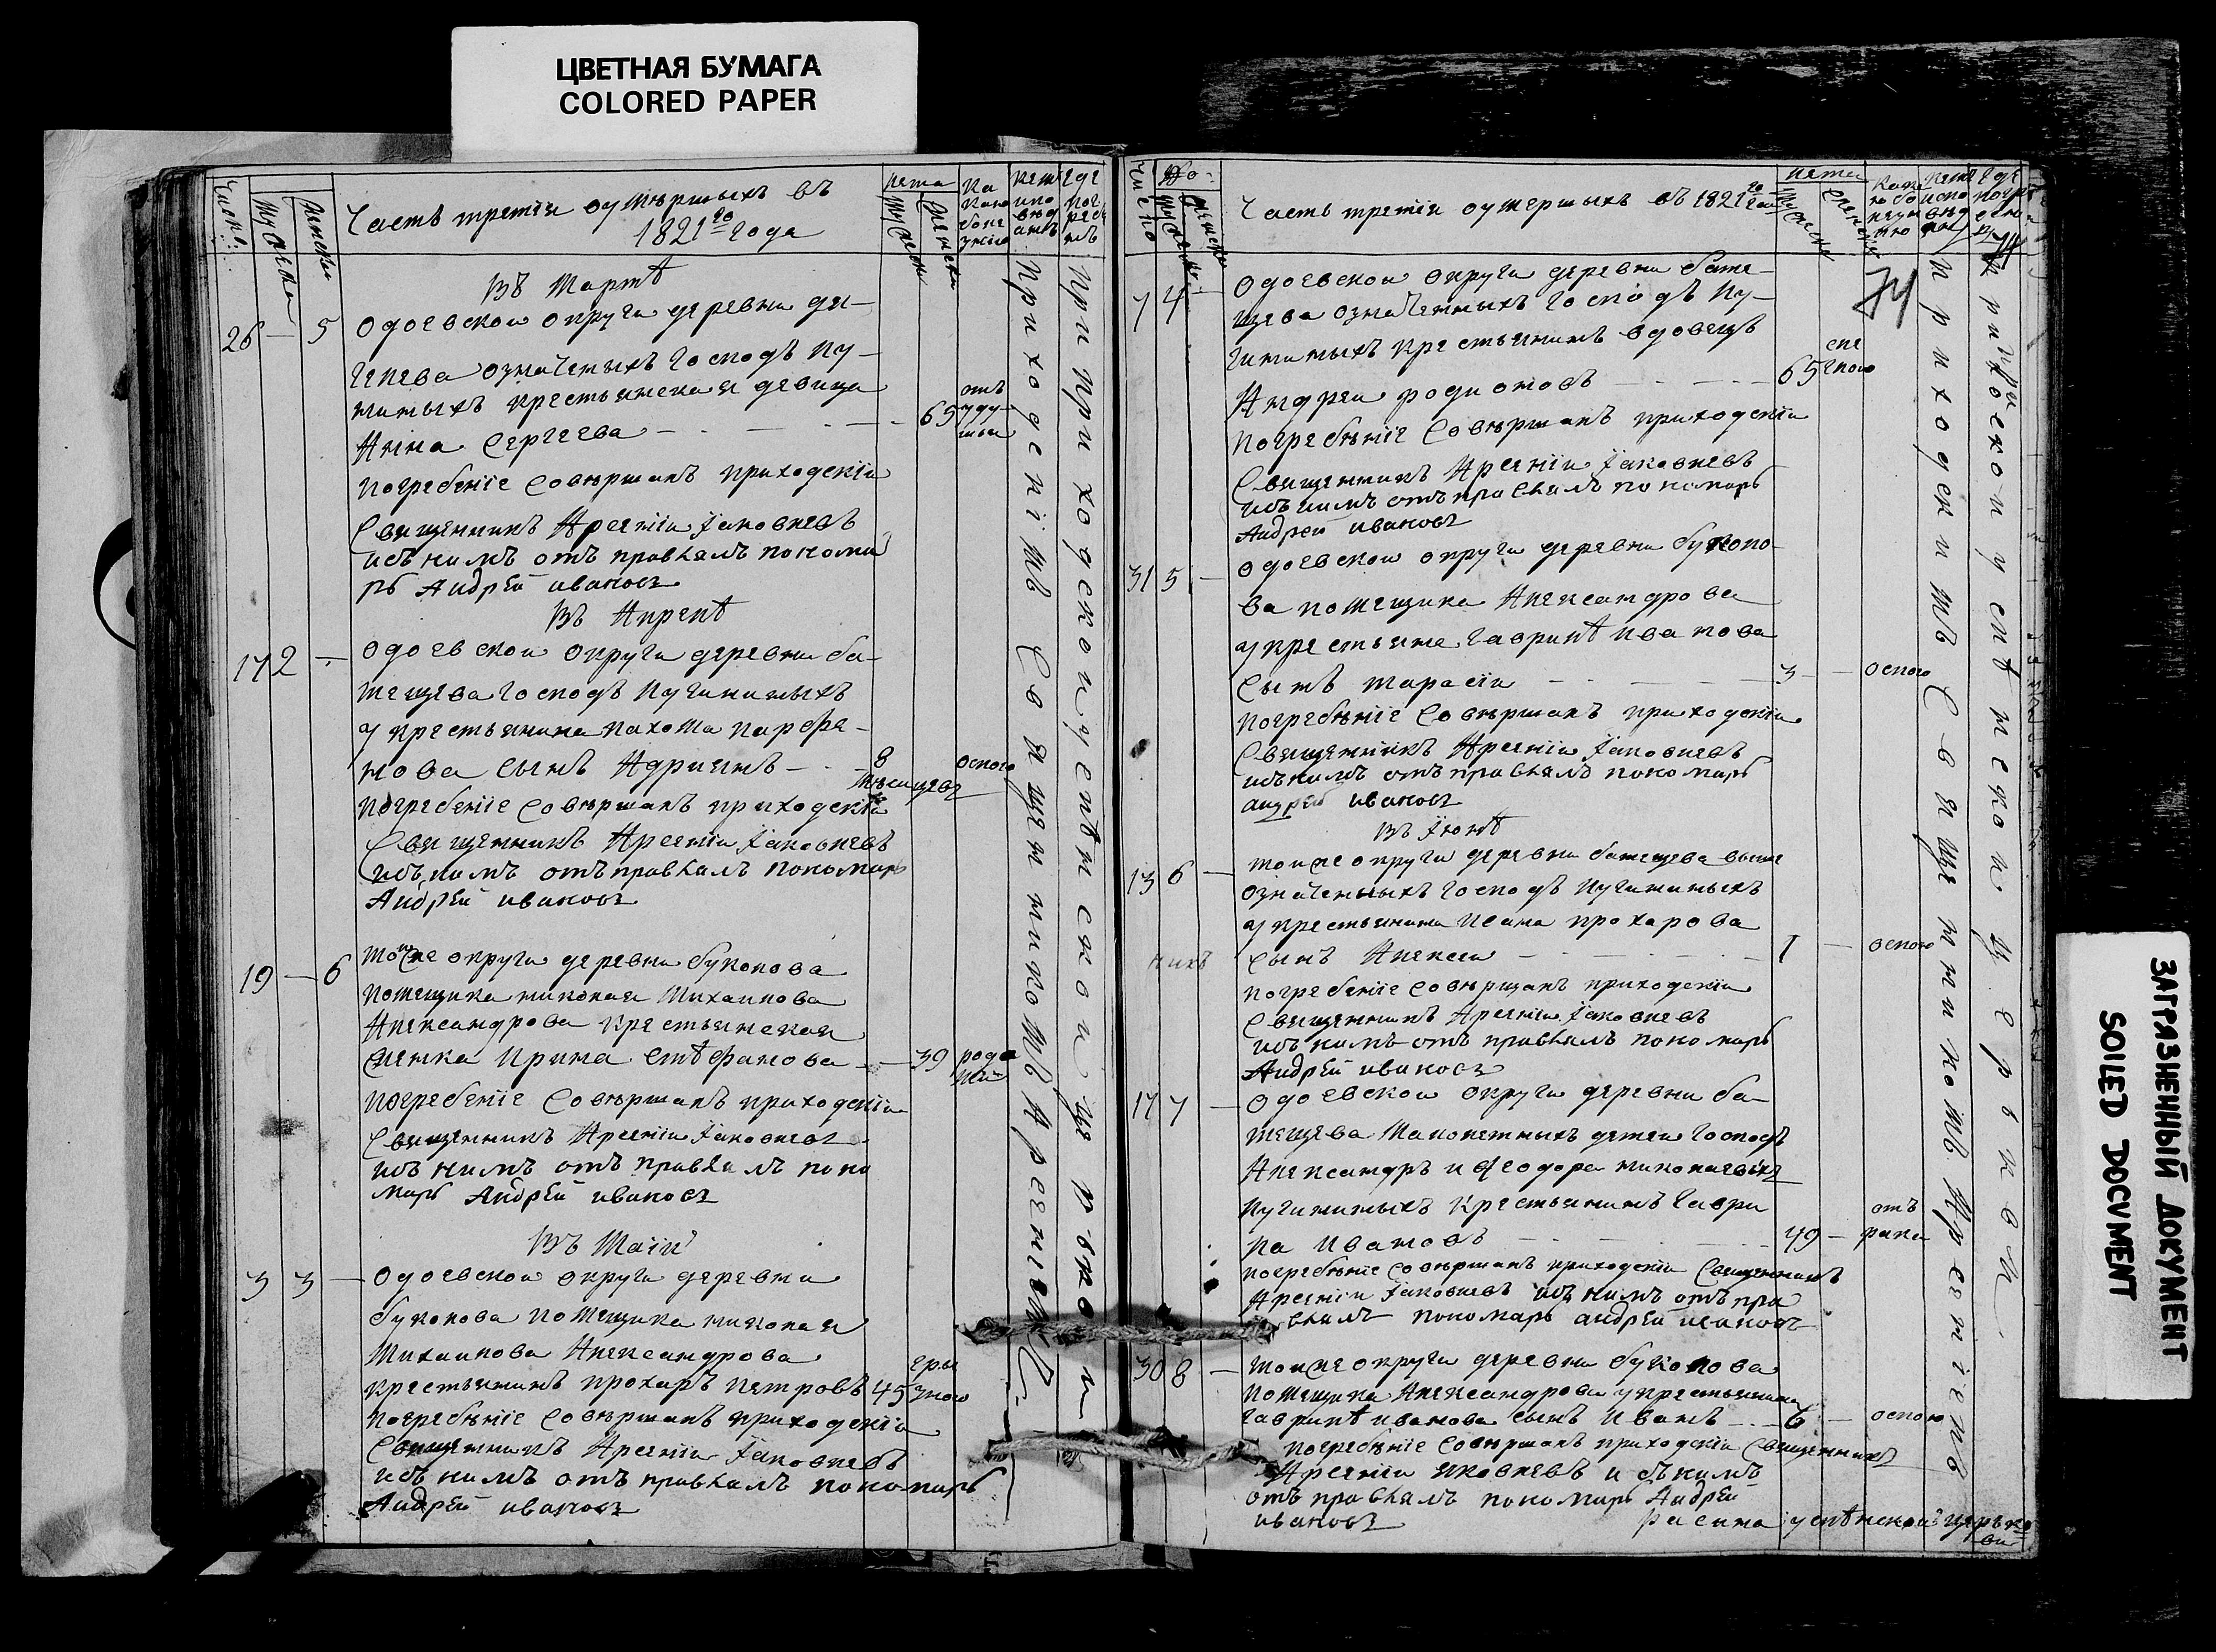 ЦВЕТНАЯ БУМАГА
COLORED PAPER
число
мужеска
женска
Часть третія оумѣршихъ въ
1821го года
лета
мужеска
женска
Въ Мартѣ
26 — 5 Одоевской округи деревни
означеныхъ господъ Пу-
крестьянская девица
Анна Сергеева — 65 отъ удушья
погребеніе совѣршалъ приходскій
Священникъ Арсеній Іаковлевъ
исъ нимъ отъправлялъ пономарь
Андрѣй ивановъ
Въ Апрелѣ
17 2 — Одоевской округи деревни ба-
тещева господъ Пучининыхъ
у крестьянина Пахома Парфе-
нова сынъ Адриянъ — 8 месяцевъ оспою
погребеніе совѣршалъ приходскій
Священникъ Арсеній Іаковлевъ
исъ нимъ отъправлялъ пономарь
Андрѣй ивановъ
19 — 6 Тойже округи деревни буколова
помещика николая Михаилова
Александрова крестьянская
женка Ирина Стефанова — 39 родами
погребеніе совѣршалъ приходскій
Священникъ Арсеній Іаковлевъ
исъ нимъ отъправлялъ поно
марь Андрѣй ивановъ
Въ Маіи
3 3 — Одоевской округи деревни
буколова помещика николая
Михаилова Александрова
крестьянинъ прохаръ петровъ 45 грызною
погребѣніе совѣршалъ приходскій
Священникъ Арсеній Іаковлевъ
исъ нимъ отъправлялъ пономарь
Андрѣй ивановъ
приходскімъ Священникомъ Арсеніемъ
при приходской успѣнской церкви
число
мужеска
женска
Часть третія оумершихъ въ 1821го года
лета
74
7 4 — Одоевской округи деревни бате-
щева означенныхъ господъ Пу-
чининыхъ крестьянинъ вдовецъ
Андрей родионовъ — 65
погребѣніе совѣршалъ приходскіи
Священникъ Арсеніи Іаковлевъ
исъ нимъ отъправлялъ пономарь
Андрей ивановъ
31 5 — Одоевской округи деревни буколо-
ва помещика Александрова
у крестьяне Гаврилѣ Иванова
сынъ тарасіи — 3 — оспою
погребѣніе совѣршалъ приходскіи
Священникъ Арсеніи Іаковлевъ
исъ нимъ отъправлялъ пономарь
андрей ивановъ
Въ Іюнѣ
13 6 — тойже округи деревни батещева выше
означенныхъ господъ Пучининыхъ
у крестьянина Исаиа прохарова
сынъ Алексеи — 1 — оспою
погребеніе совѣршалъ приходскіи
Священникъ Арсеніи Іаковлевъ
исъ нимъ отъправлялъ пономарь
Андрѣй ивановъ
17 7 — Одоевской округи деревни ба-
тещева Малолетныхъ детей господъ
Александръ и Феодора николаевыхъ
Пучининыхъ крестьянинъ Гаври
ла Ивановъ — 49 — отъ рака
погребѣніе совѣршалъ приходскіи Священникъ
Арсеніи Іаковлевъ исъ нимъ отъпра
влялъ пономарь андрѣй ивановъ
30 8 — тойже округи деревни буколова
помещика Александрова у крестьянина
Гаврилѣ иванова сынъ Иванъ — 6 — оспою
погребѣніе совѣршалъ приходскіи Священникъ
Арсеніи яковлевъ и съ нимъ
отъправлялъ пономарь Андрѣй
ивановъ
успѣнской церькви
приходскимъ Священникомъ Арсеніемъ
приходской успѣнской церкви
ЗАГРЯЗНЕННЫЙ ДОКУМЕНТ
SOILED DOCUMENT